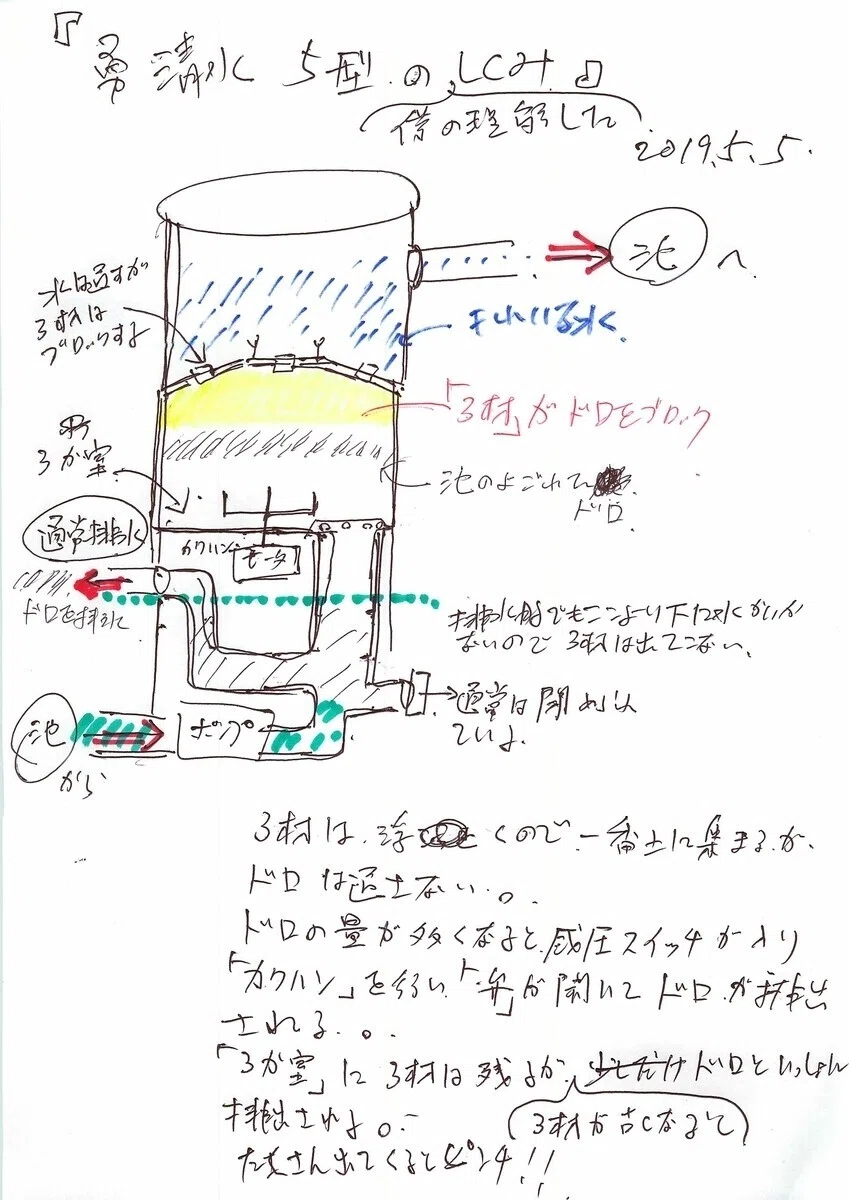 『勇清水 5型 のしくみ』
僕の理解した
2019.5.5.
水は通すが
ろ材は
ブロックする
池
へ
きれいな水
「ろ材」がドロをブロック
ろか室
池のよごれで
ドロ
通常排水
カクハン
モータ
ドロを排水
排水時でもここより下に水がいか
ないので ろ材は出てこない。
通常は閉めて
いる。
池
から
ポンプ
ろ材は 浮くので、一番上に集まるが、
ドロは通さない。
ドロの量が多くなると、感圧スイッチが入り
「カクハン」を行い「弁」が開いて ドロが排出
される。
「ろか室」に ろ材は残るが、少しだけドロといっしょに
排出される。
(ろ材が古くなると)
たくさん出てくるとピンチ!!